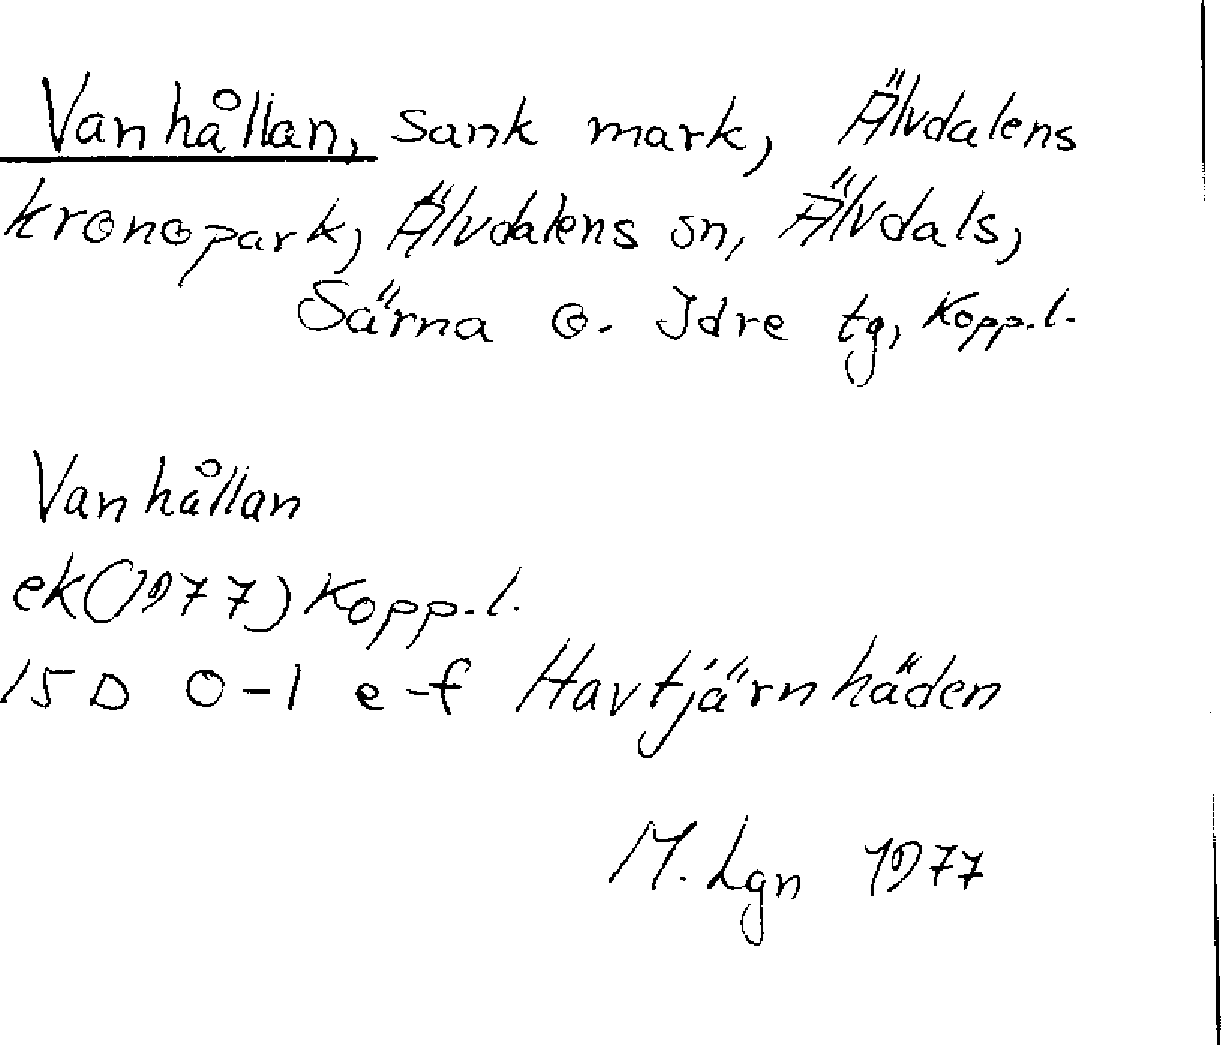 Vanhållan, sank mark, Älvdalens
kronopark, Älvdalens sn, Älvdals,
Särna o. Idre tg, Kopp.l.
Vanhållan
ek(1977) Kopp.l.
15 D 0-1 e-f Havtjärnhäden
M. Lgn 1977